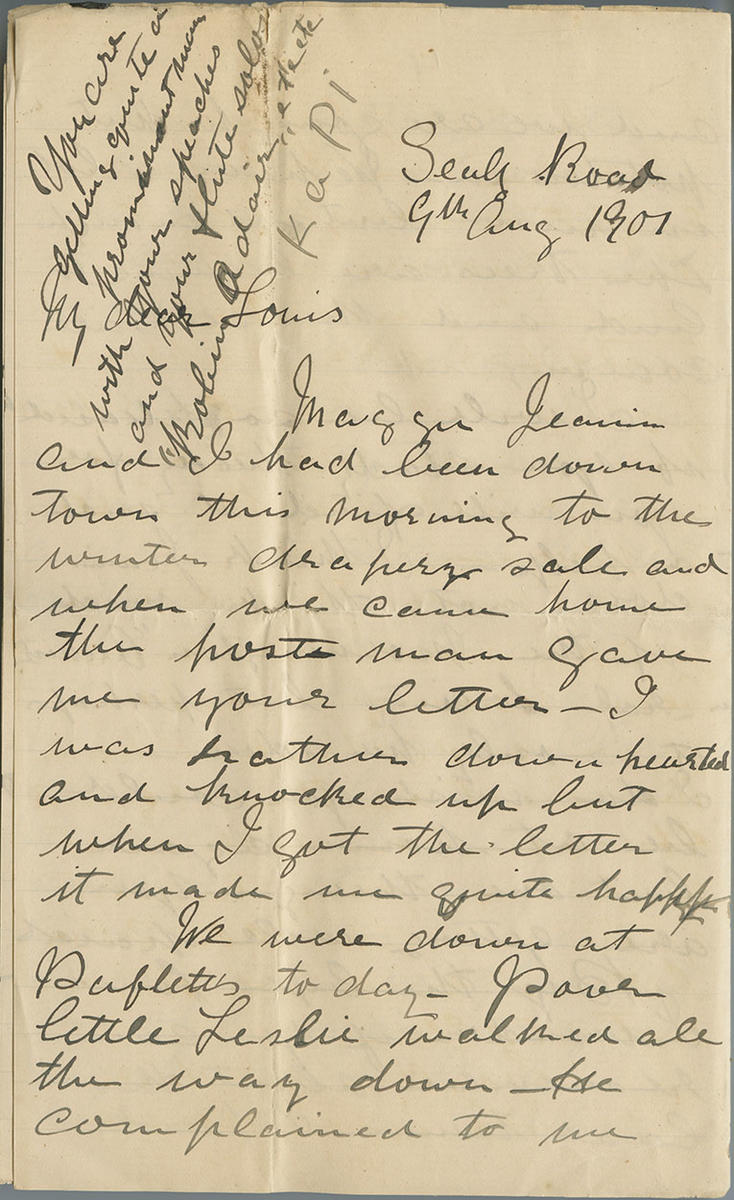 You are
getting quite a
prominent man
with your speaches
and your flute solo
"Robin Adair" etc etc
Kapi
Road
9th Aug 1901
My dear Louis
Maggie Jeannie
and I had been down
town this morning to the
winter drapery sale and
when we came home
the post man gave
me your letter – I
was rather down hearted
and knocked up but
when I got the letter
it made me quite happy
We were down at
to day – Poor
little Leslie walked all
the way down – He
complained to me